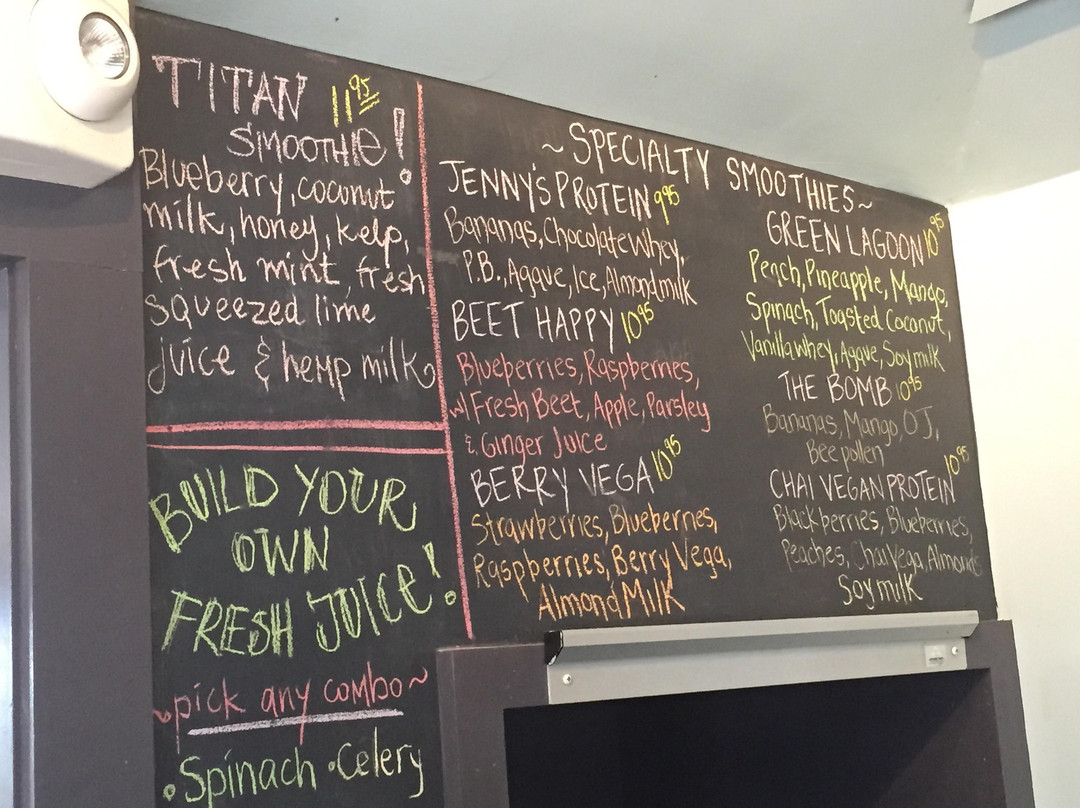 TITAN 11.95
SMOOTHIE!
Blueberry, coconut
milk, honey, kelp,
fresh mint, fresh
squeezed lime
juice & hemp milk
BUILD YOUR
OWN
FRESH JUICE!
~pick any combo~
• Spinach • Celery
~ SPECIALTY SMOOTHIES ~
JENNY'S PROTEIN 9.95
Bananas, Chocolate Whey,
P.B., Agave, Ice, Almond milk
BEET HAPPY 10.95
Blueberries, Raspberries,
w/ Fresh Beet, Apple, Parsley
& Ginger Juice
BERRY VEGA 10.95
Strawberries, Blueberries,
Raspberries, Berry Vega,
Almond Milk
GREEN LAGOON 10.95
Peach, Pineapple, Mango,
Spinach, Toasted Coconut,
Vanilla whey, Agave, Soy milk
THE BOMB 10.95
Bananas, Mango, O.J.,
Bee pollen
CHAI VEGAN PROTEIN 10.95
Blackberries, Blueberries,
Peaches, Chai Vega, Almonds
Soy milk